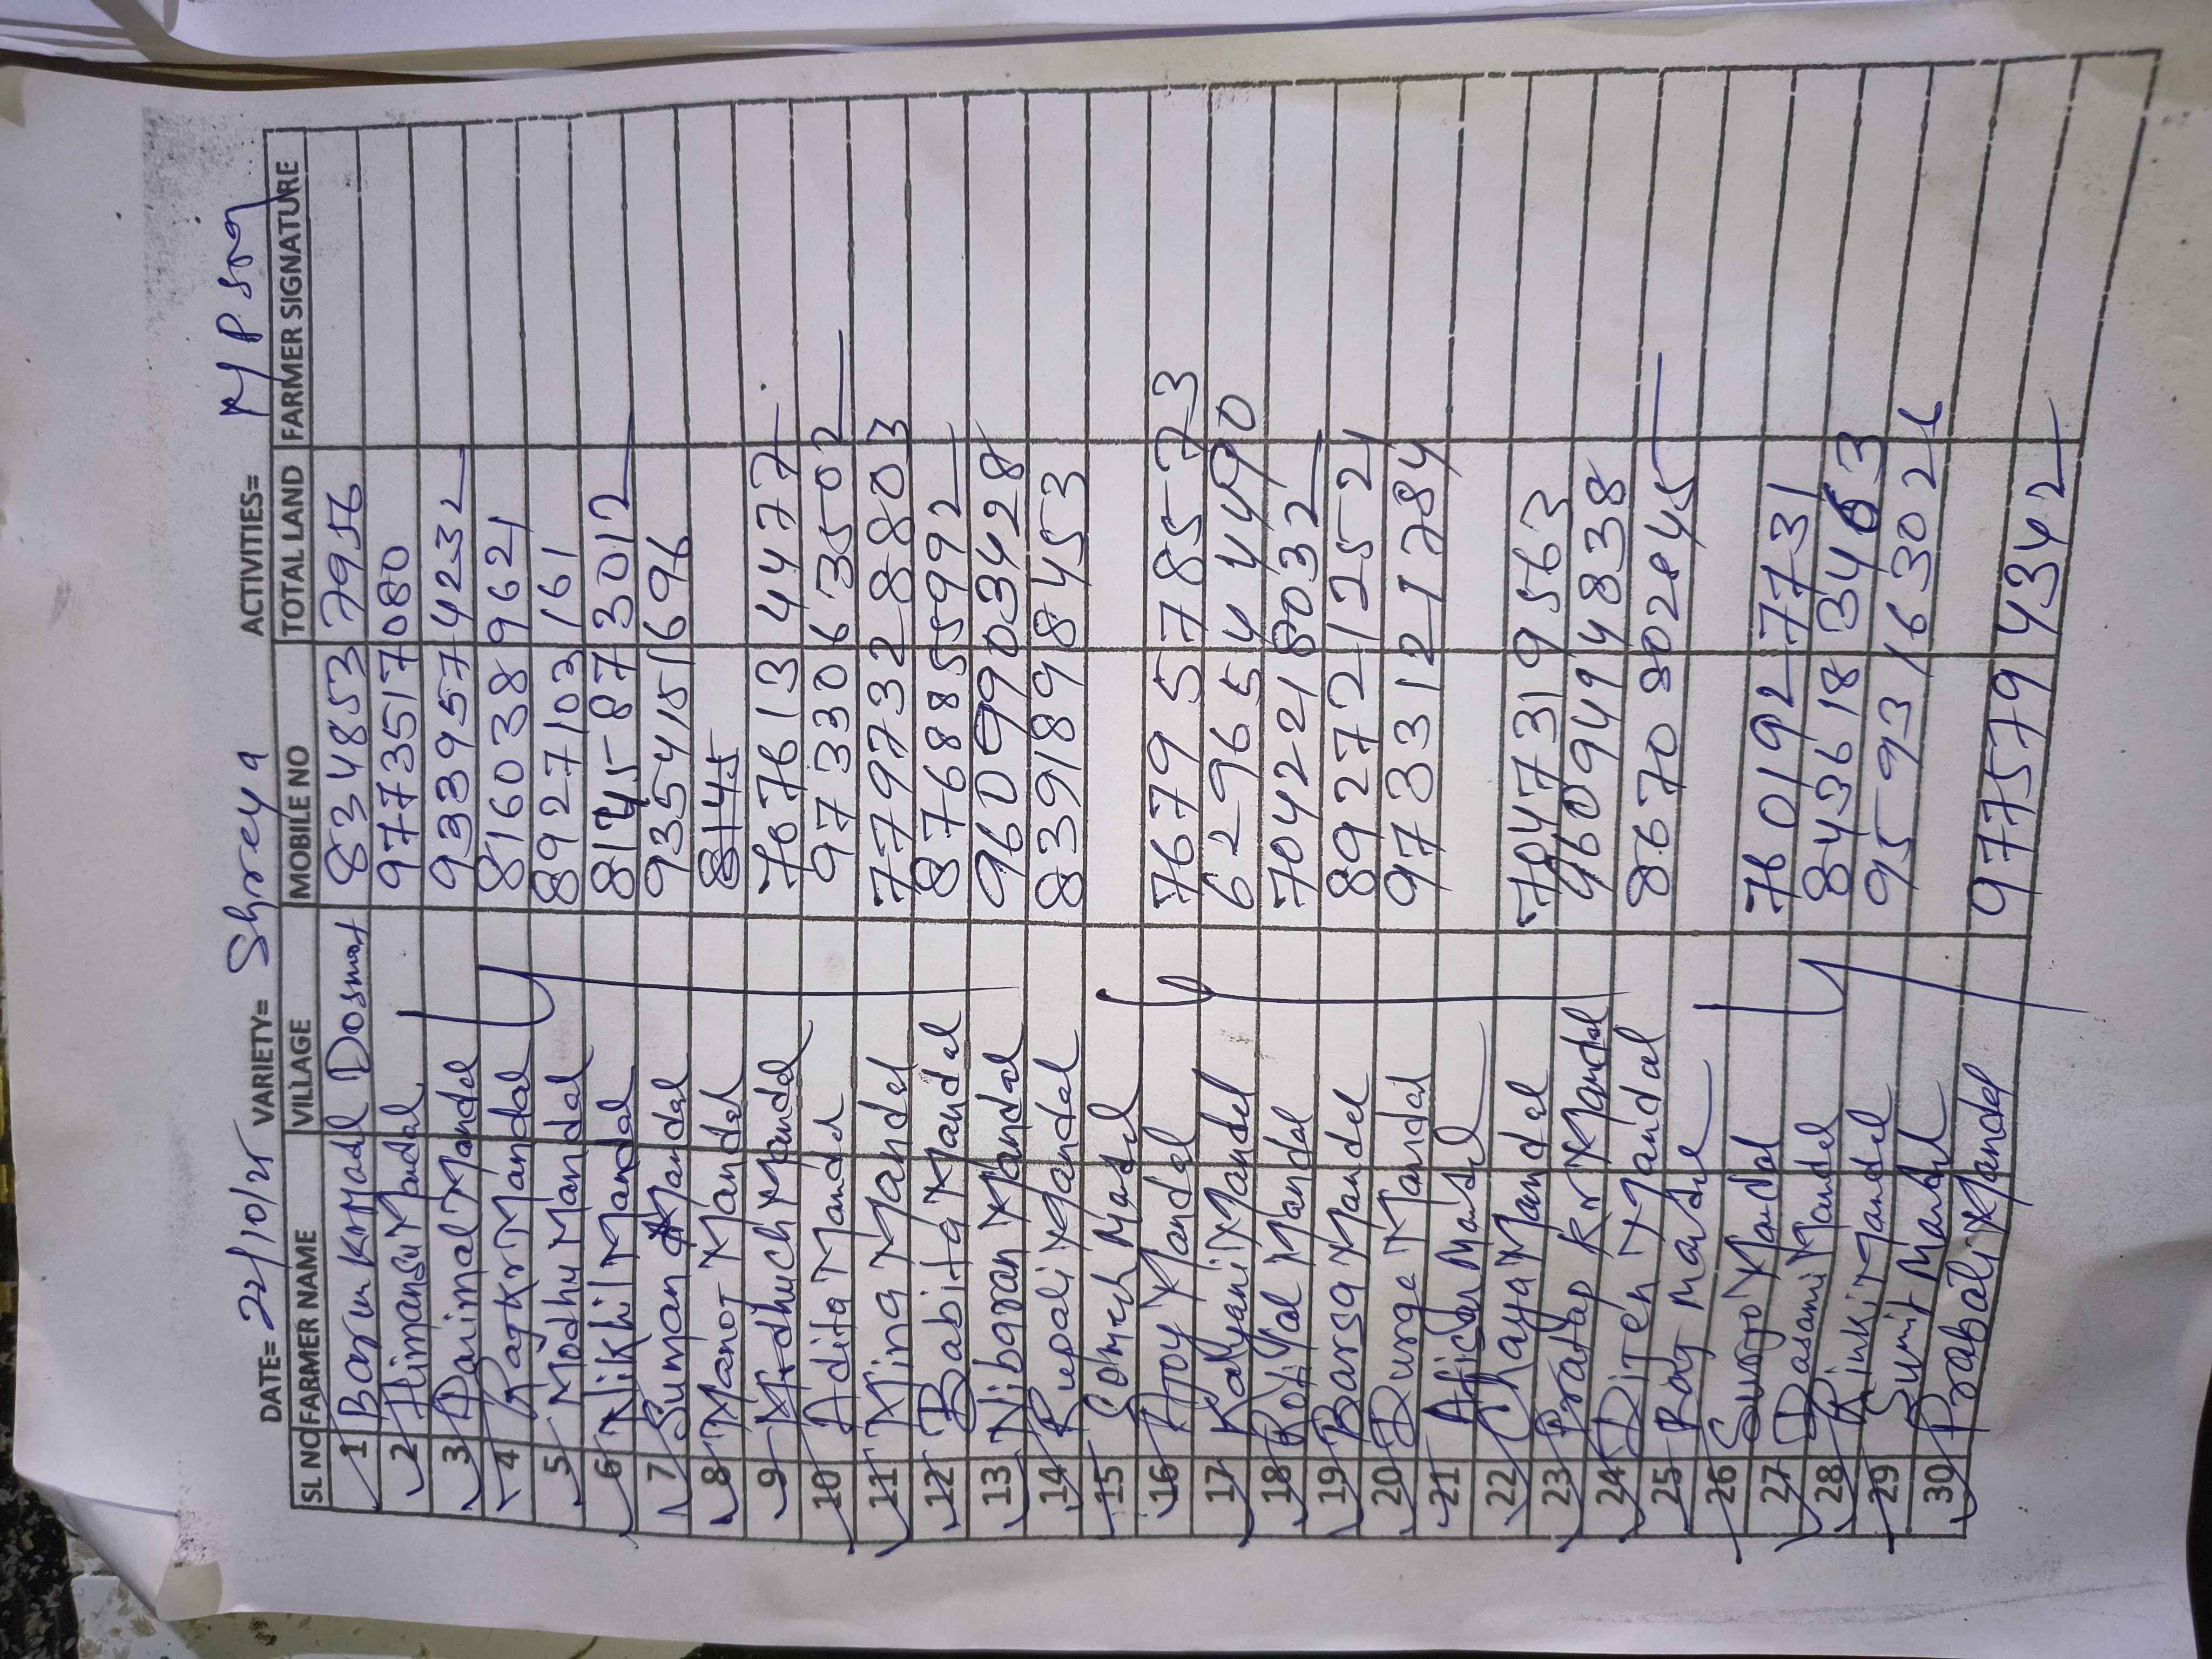 DATE= 22/10/25 VARIETY= Shreya ACTIVITIES=
SL NO FARMER NAME VILLAGE MOBILE NO TOTAL LAND FARMER SIGNATURE
1 Barun Kr Mandal Dosmat 8334853 7956
2 Himansu Mandal 9773551 7080
3 Parimal Mandal 933957 4232
4 Rajkr Mandal 816038 9621
5 Modhu Mandal 8927103 161
6 Nikhil Mandal 87 3012
7 Suman Mandal 935415 1696
8 Manoj Mandal 8145
9 Mandal 707613 4477
10 Adita Mandal 973306 63502
11 Mina Mandal 779732 8803
12 Babita Mandal 876885 5992
13 Nibaran Mandal 960990 3428
14 Rupali Mandal 839189 8453
15 Somesh Mandal
16 Ajoy Mandal 7679 5 78573
17 Kalyani Mandal 62965 4 4490
18 Mandal 704221 8032
19 Barsa Mandal 892721 2521
20 Durga Mandal 97331 21784
21 Mandal
22 Chaya Mandal 7047319 563
23 Pratap Kr Mandal 9609494838
24 Dijen Mandal 8670 802845
25 Mandal
26 Mandal 760192 7731
27 Dasami Mandal 843618 3463
28 Rinki Mandal 9593 163026
29 Sumit Mandal
30 Prabali Mandal 977579 4342